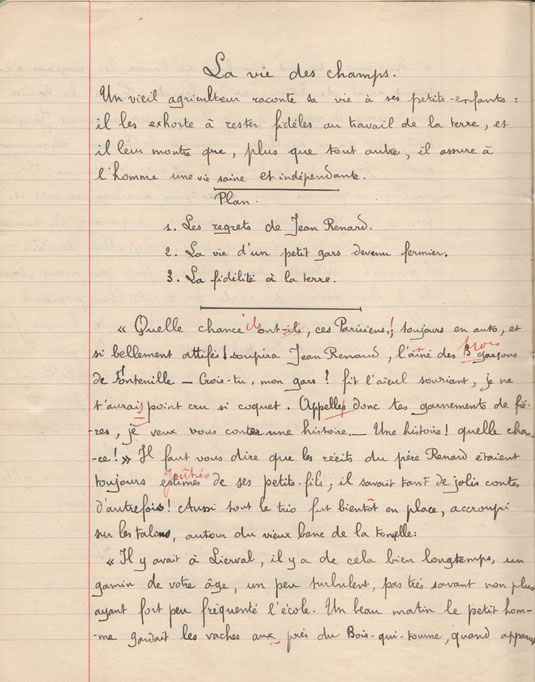 La vie des champs.
Un vieil agriculteur raconte sa vie à ses petits-enfants :
il les exhorte à rester fidèles au travail de la terre, et
il leur montre que, plus que tout autre, il assure à
l'homme une vie saine et indépendante.
Plan.
1. Les regrets de Jean Renard.
2. La vie d'un petit gars devenu fermier.
3. La fidélité à la terre.
« Quelle chance ils ont-ils, ces Parisiens! toujours en auto, et
trois
si bellement attifés! soupira Jean Renard, l'aîné des 3 garçons
de Fontenille — Crois-tu, mon gars? fit l'aïeul souriant, je ne
t'aurais point cru si coquet. Appelles donc tes garnements de frè-
res, je veux vous conter une histoire — Une histoire! quelle chan-
ce!» Il faut vous dire que les récits du père Renard étaient
goûtés
toujours estimés de ses petits-fils; il savait tant de jolis contes
d'autrefois! Aussi tout le trio fut bientôt en place, accroupi
sur les talons, autour du vieux banc de la tonnelle:
« Il y avait à Lierval, il y a de cela bien longtemps, un
gamin de votre âge, un peu turbulent, pas très savant non plus
ayant fort peu fréquenté l'école. Un beau matin le petit hom-
me gardait les vaches aux près du Bois-qui-tourne, quand